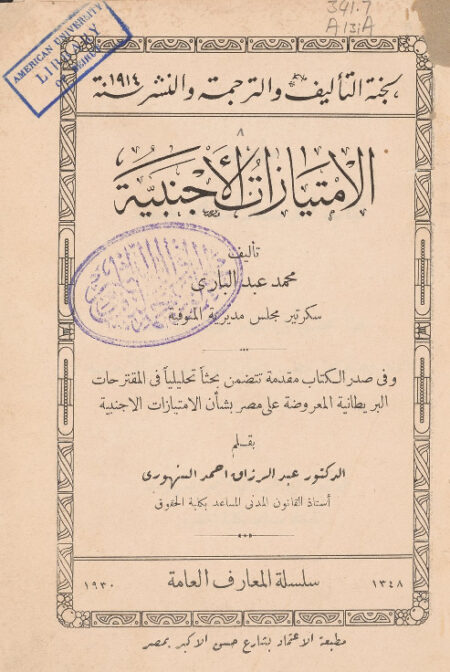 341.7
A131A
AMERICAN UNIVERSITY
LIBRARY
OF BEIRUT
لجنة التأليف والترجمة والنشر سنة ١٩١٤
٨
الامتيازات الأجنبية
تأليف
محمد عبد البارى
سكرتير مجلس مديرية المنوفية
وفى صدر الكتاب مقدمة تتضمن بحثاً تحليلياً فى المقترحات
البريطانية المعروضة على مصر بشأن الامتيازات الاجنبية
بقلم
الدكتور عبد الرزاق احمد السنهورى
أستاذ القانون المدنى المساعد بكلية الحقوق
١٣٤٨ سلسلة المعارف العامة ١٩٣٠
مطبعة الاعتماد بشارع حسن الاكبر بمصر